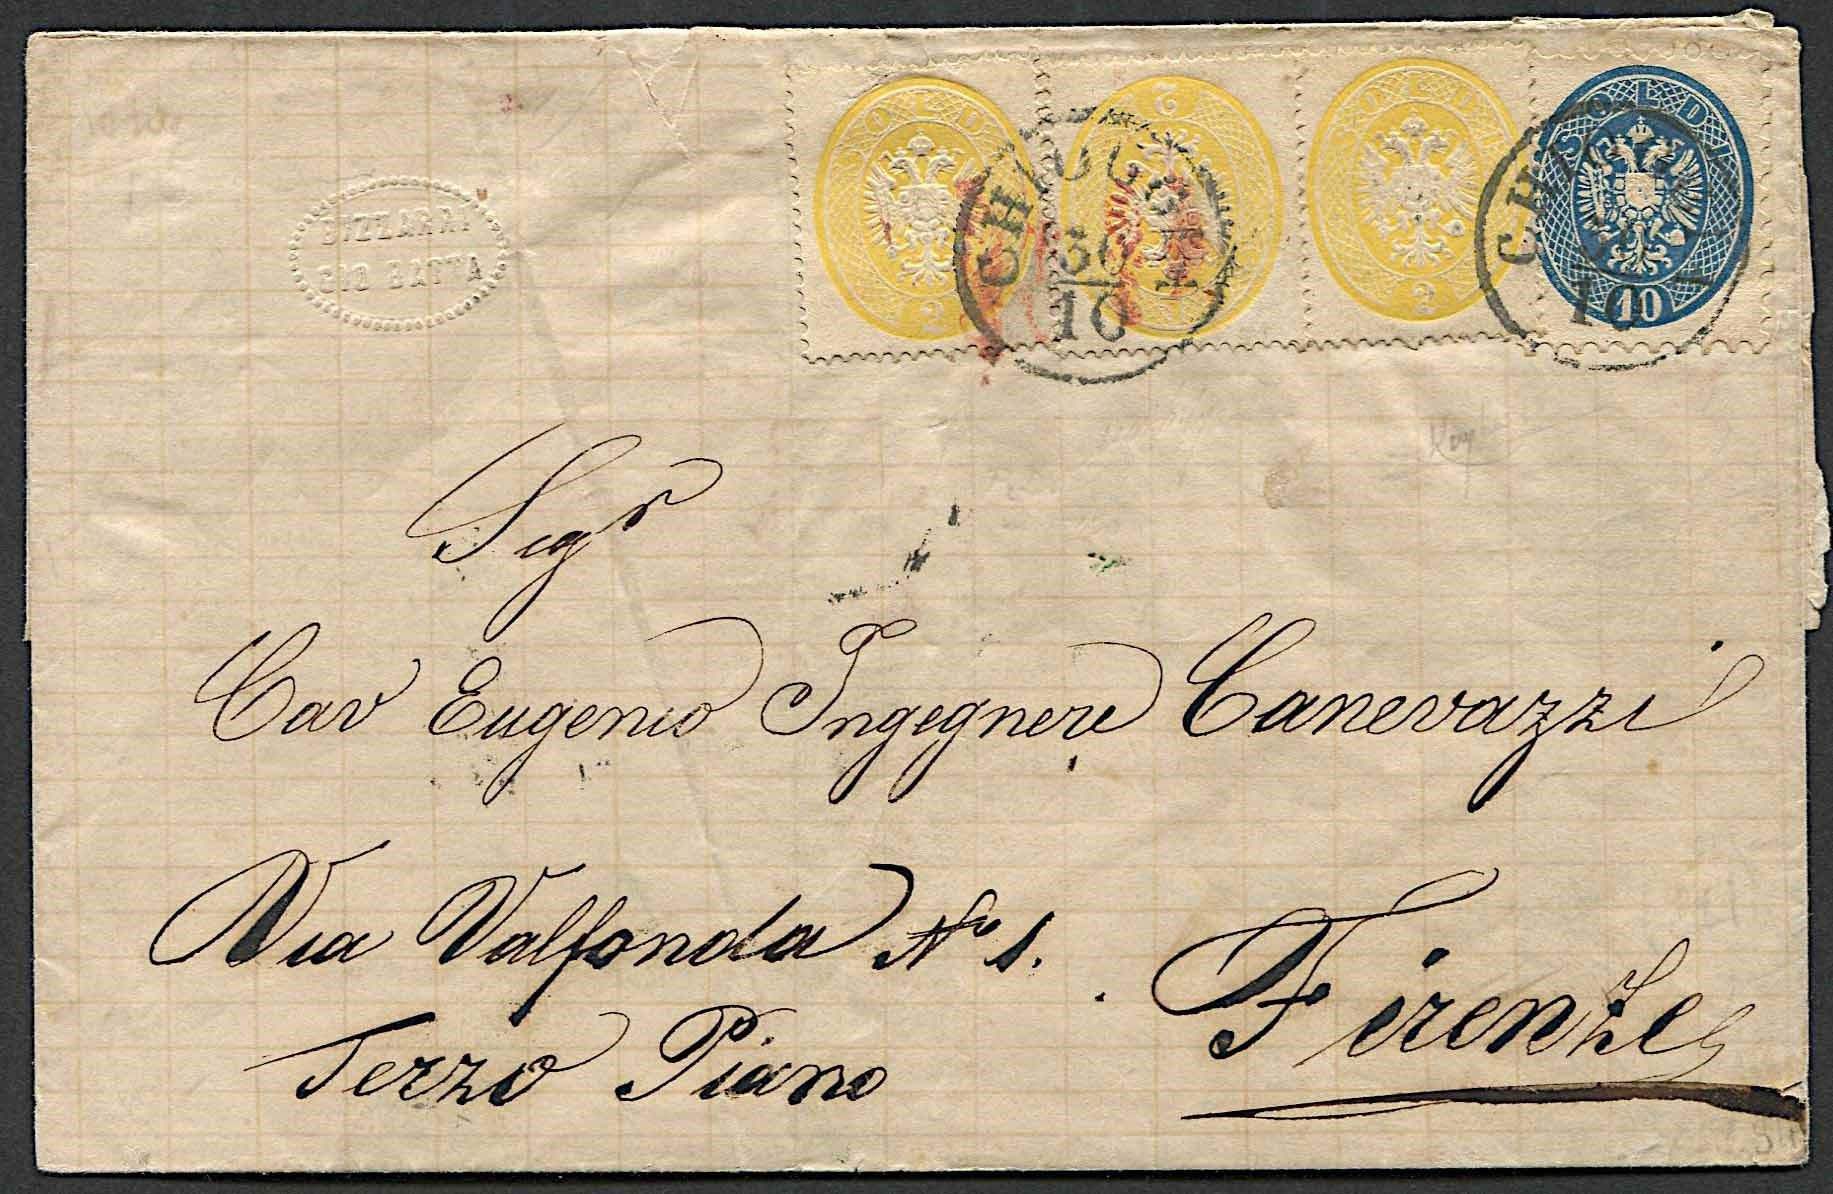 BIZZARRI
GIO BATTA
SOLDI 2
SOLDI 2
SOLDI 2
SOLDI 10
CHIOGGIA
30/10
CHIOGGIA
10
Sigr
Cav Eugenio Ingegnere Canevazzi
Via Valfonda No 1.
Terzo Piano
Firenze